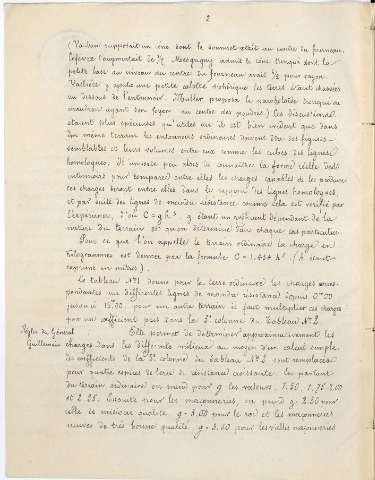 2
(Vauban supposait un cône dont le sommet était au centre du fourneau,
Lefèvre l'augmentait de 1/7. Mesgrigny admit le cône tronqué dont la
petite base au niveau du centre du fourneau avait 1/2 pour rayon
Vallière y ajouta une petite calotte sphérique les terres étant chassées
au dessous de l'entonnoir. Muller proposa le paraboloïde tronqué de
révolution ayant son foyer au centre des poudres) les discussions
étaient plus spécieuses qu'utiles car il est bien évident que dans
un même terrain les entonnoirs ordinaires doivent être des figures
semblables et leurs volumes entre eux comme les cubes des lignes
homologues. Il importe peu alors de connaître la forme réelle des
entonnoirs pour comparer entre elles les charges capables de les produire
ces charges seront entre elles dans le rapport des lignes homologues,
et par suite des lignes de moindre résistance comme cela est vérifié par
l'expérience, d'où C = g h³ g étant un coefficient dépendant de la
nature du terrain et qu'on détermine dans chaque cas particulier
Pour ce que l'on appelle le terrain ordinaire la charge en
kilogrammes est donnée par la formule C = 1.454 h³ (h étant
exprimé en mètres).
Le tableau N°1 donne pour la terre ordinaire les charges corres-
pondantes aux différentes lignes de moindre résistance depuis 0.00
jusqu'à 15.00 pour un autre terrain il faut multiplier ces charges
par un coefficient pris dans la 3e colonne du Tableau N°2
Règle du Général
Guillemain
Elle permet de déterminer approximativement les
charges dans les différents milieux au moyen d'un calcul simple
les coefficients de la 3e colonne du tableau N°2 sont remplacés
pour quatre espèces de terre de résistance croissante en partant
du terrain ordinaire on prend pour g les valeurs 1.50, 1.75, 2.00
et 2.25. Ensuite pour les maçonneries, on prend g = 2.50 pour
celle de mauvaise qualité g = 3.00 pour le roc et les maçonneries
neuves de très bonne qualité g = 3.50 pour les vieilles maçonneries